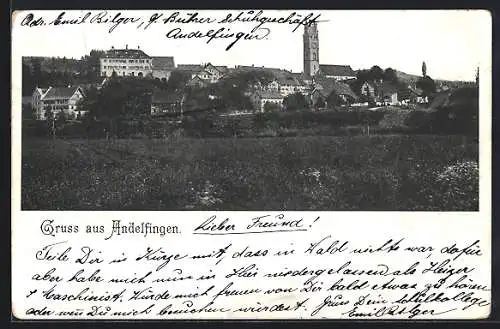 Adr. Emil Bilger, z. Butzer Schuhgeschäft
Andelfingen.
Gruss aus Andelfingen.
Lieber Freund!
Teile Dir in Kürze mit, dass in Wald nichts war, dafür
aber habe mich nun in hier niedergelassen als Heizer
& Maschinist. Würde mich freuen von Dir bald etwas zu hören
oder wen Du mich besuchen würdest. Gruss Dein Schulkollege
Emil Bilger